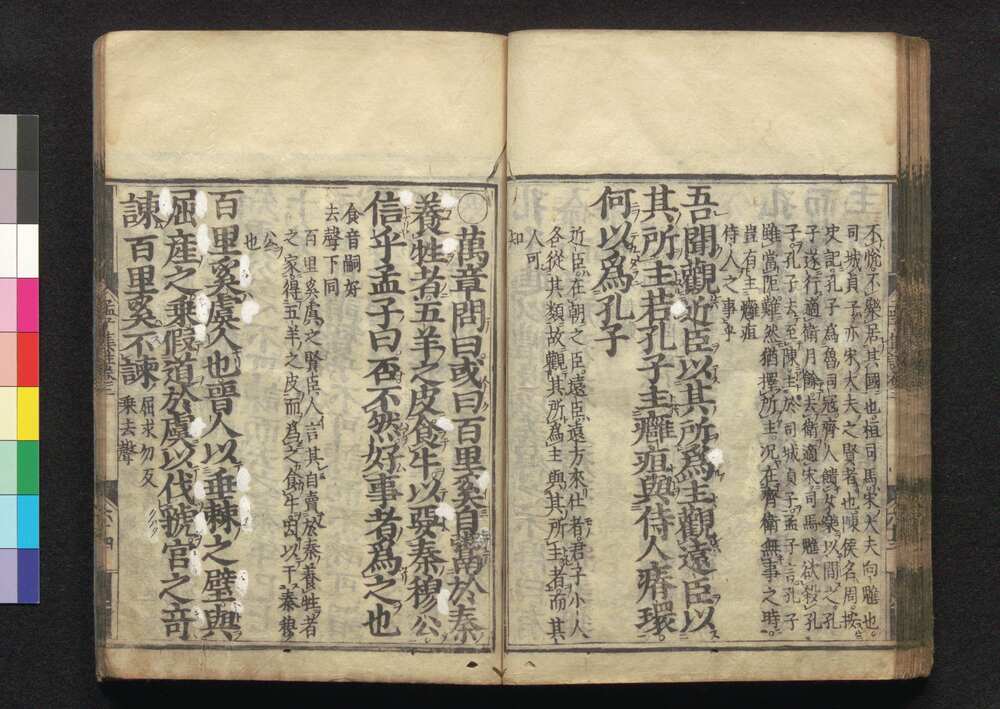 不悅不樂居其國也桓司馬宋大夫向魋也
司城貞子亦宋大夫之賢者也陳侯名周按
史記孔子爲魯司冦齊人饋女樂以間之孔
子遂行適衛月餘去衛適宋司馬魋欲殺孔
子孔子去至陳主於司城貞子孟子言孔子
雖當阨難然猶擇所主况在齊衛無事之時
豈有主癰疽
侍人之事乎
吾聞觀近臣以其所爲主觀遠臣以
其所主若孔子主癰疽與侍人瘠環
何以爲孔子
近臣在朝之臣遠臣遠方來仕者君子小人
各從其類故觀其所爲主與其所主者而其
人可
知
○萬章問曰或曰百里奚自鬻於秦
養牲者五羊之皮食牛以要秦穆公
信乎孟子曰否不然好事者爲之也
食音嗣好
去聲下同
百里奚虞之賢臣人言其自賣於秦養牲者
之家得五羊之皮而爲之食牛因以干秦穆
公
也
百里奚虞人也晉人以垂棘之璧與
屈産之乘假道於虞以伐虢宮之奇
諫百里奚不諫
屈求勿反
乘去聲